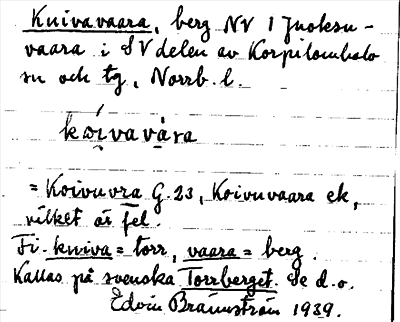 Kuivavaara, berg NV I Juoksu-
vaara i SV delen av Korpilombolo
sn och tg, Norrb. l.
kúivavàra
= Koivuvra G. 23, Koivuvaara ek,
vilket är fel.
Fi. kuiva = torr, vaara = berg.
Kallas på svenska Torrberget. Se d.o.
Edvin Brännström 1939.